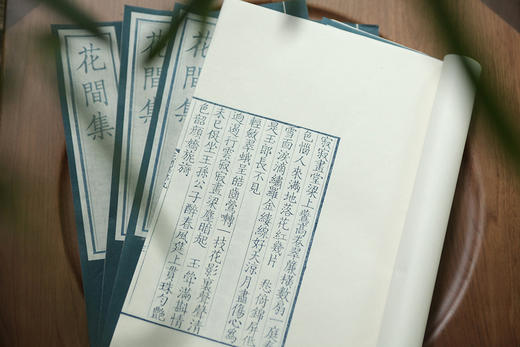 花間集
花間集
花間集
寂寂畫堂梁上鷰高卷翠簾橫數扇一庭春
色惱人來滿地落花紅幾片 愁倚錦屏低
雪面淚滴繡羅金縷線好天涼月盡傷心爲
是玉郎長不見
輕斂翠蛾呈皓齒鶯囀一枝花影裏聲聲清
迥遏行雲寂寂畫梁塵暗起 玉斝滿斟情
未已促坐王孫公子醉春風筵上貫珠勻艷
色韶顏嬌旖旎